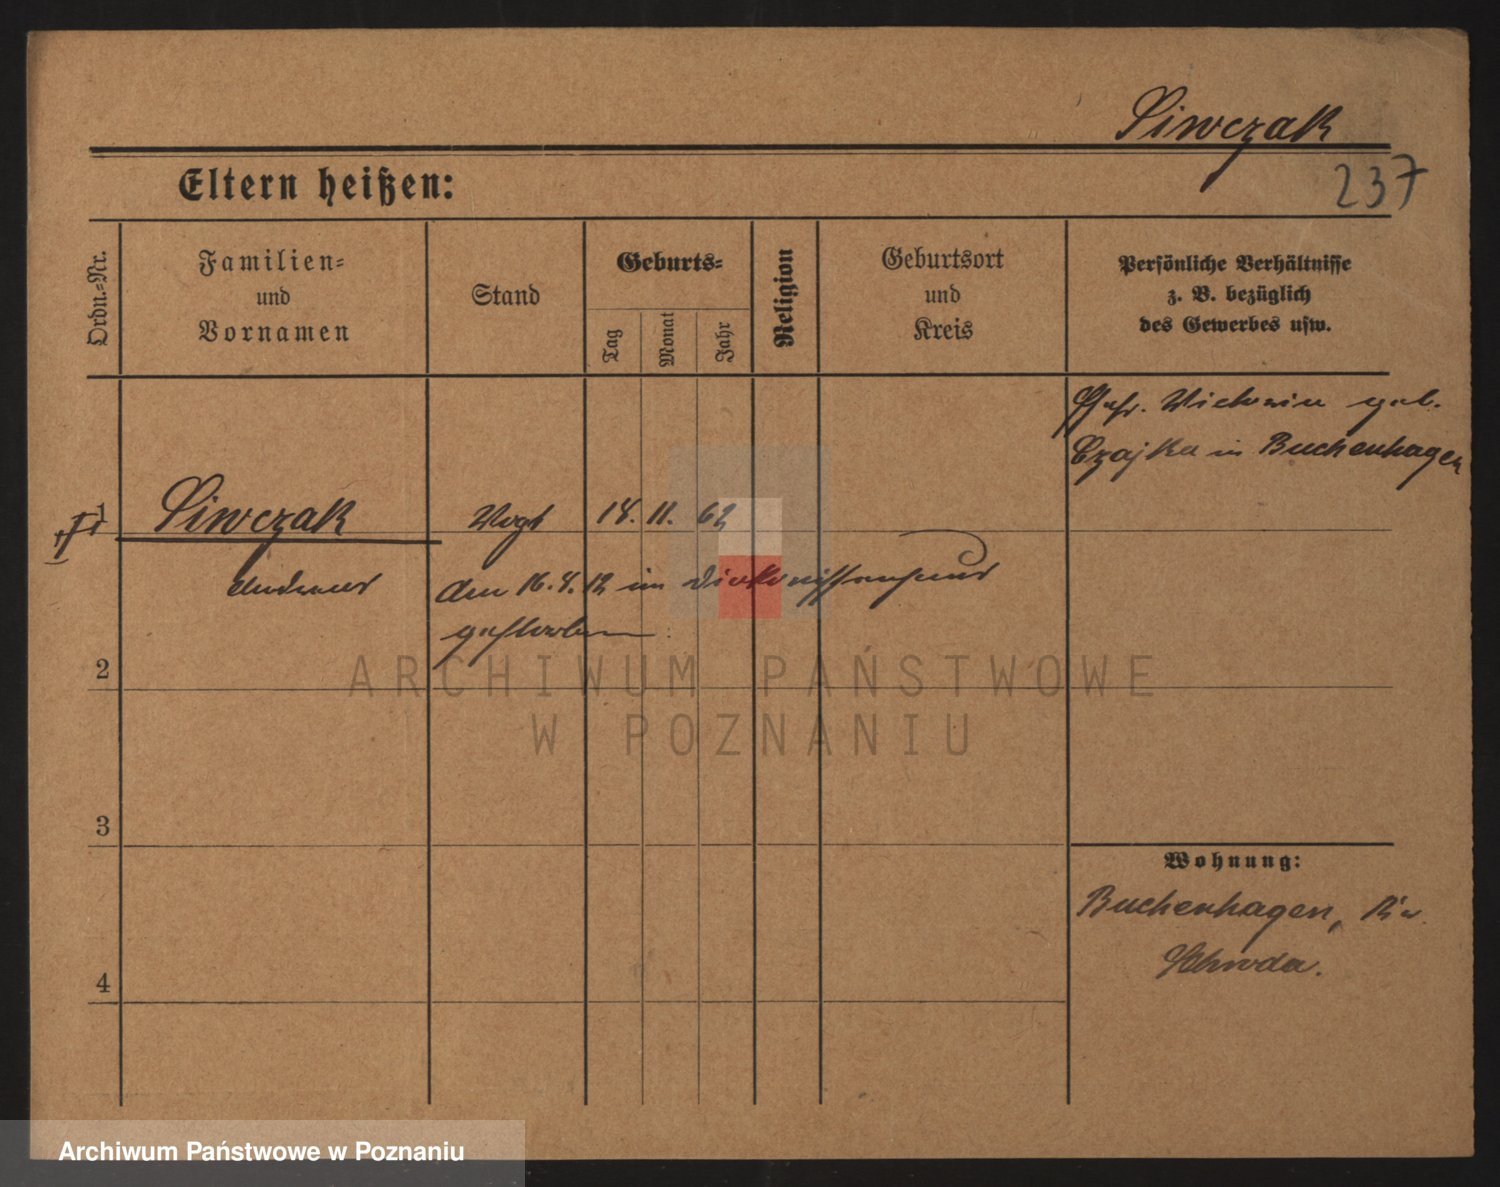 Siwczak
237
Eltern heißen:
Ordn.-Nr.
Familien-
und
Vornamen
Stand
Geburts-
Tag
Monat
Jahr
Religion
Geburtsort
und
Kreis
Persönliche Verhältnisse
z. B. bezüglich
des Gewerbes usw.
Ehefr. Victoria geb.
Czajka in Buchenhagen
1
Siwczak Vogt 18. 11. 62
Andreas den 16. 8. 12 im Diakonissenhaus
gestorben
2
ARCHIWUM PAŃSTWOWE
W POZNANIU
3
Wohnung:
Buchenhagen, Kr.
Schroda.
4
Archiwum Państwowe w Poznaniu